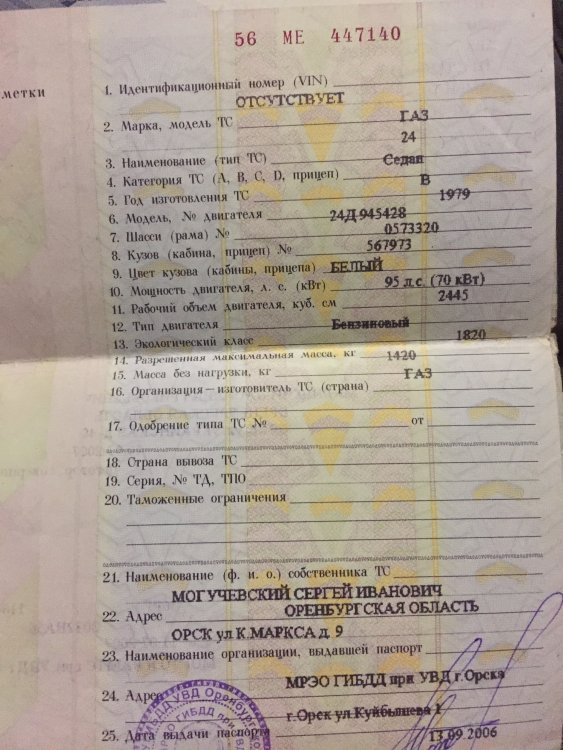 56 МЕ 447140
метки
1. Идентификационный номер (VIN)
ОТСУТСТВУЕТ
2. Марка, модель ТС ГАЗ
24
3. Наименование (тип ТС) Седан
4. Категория ТС (А, В, С, D, прицеп) В
5. Год изготовления ТС 1979
6. Модель, № двигателя 24Д 945428
7. Шасси (рама) № 0573320
8. Кузов (кабина, прицеп) № 567973
9. Цвет кузова (кабины, прицепа) БЕЛЫЙ
10. Мощность двигателя, л. с. (кВт) 95 л.с. (70 кВт)
11. Рабочий объем двигателя, куб. см 2445
12. Тип двигателя Бензиновый
13. Экологический класс 1820
14. Разрешенная максимальная масса, кг 1420
15. Масса без нагрузки, кг ГАЗ
16. Организация—изготовитель ТС (страна)
17. Одобрение типа ТС № от
18. Страна вывоза ТС
19. Серия, № ТД, ТПО
20. Таможенные ограничения
21. Наименование (ф. и. о.) собственника ТС
МОГУЧЕВСКИЙ СЕРГЕЙ ИВАНОВИЧ
22. Адрес ОРЕНБУРГСКАЯ ОБЛАСТЬ
ОРСК ул К.МАРКСА д. 9
23. Наименование организации, выдавшей паспорт
МРЭО ГИБДД при УВД г.Орска
24. Адрес
г.Орск ул Куйбышева 1
25. Дата выдачи паспорта 13.09.2006